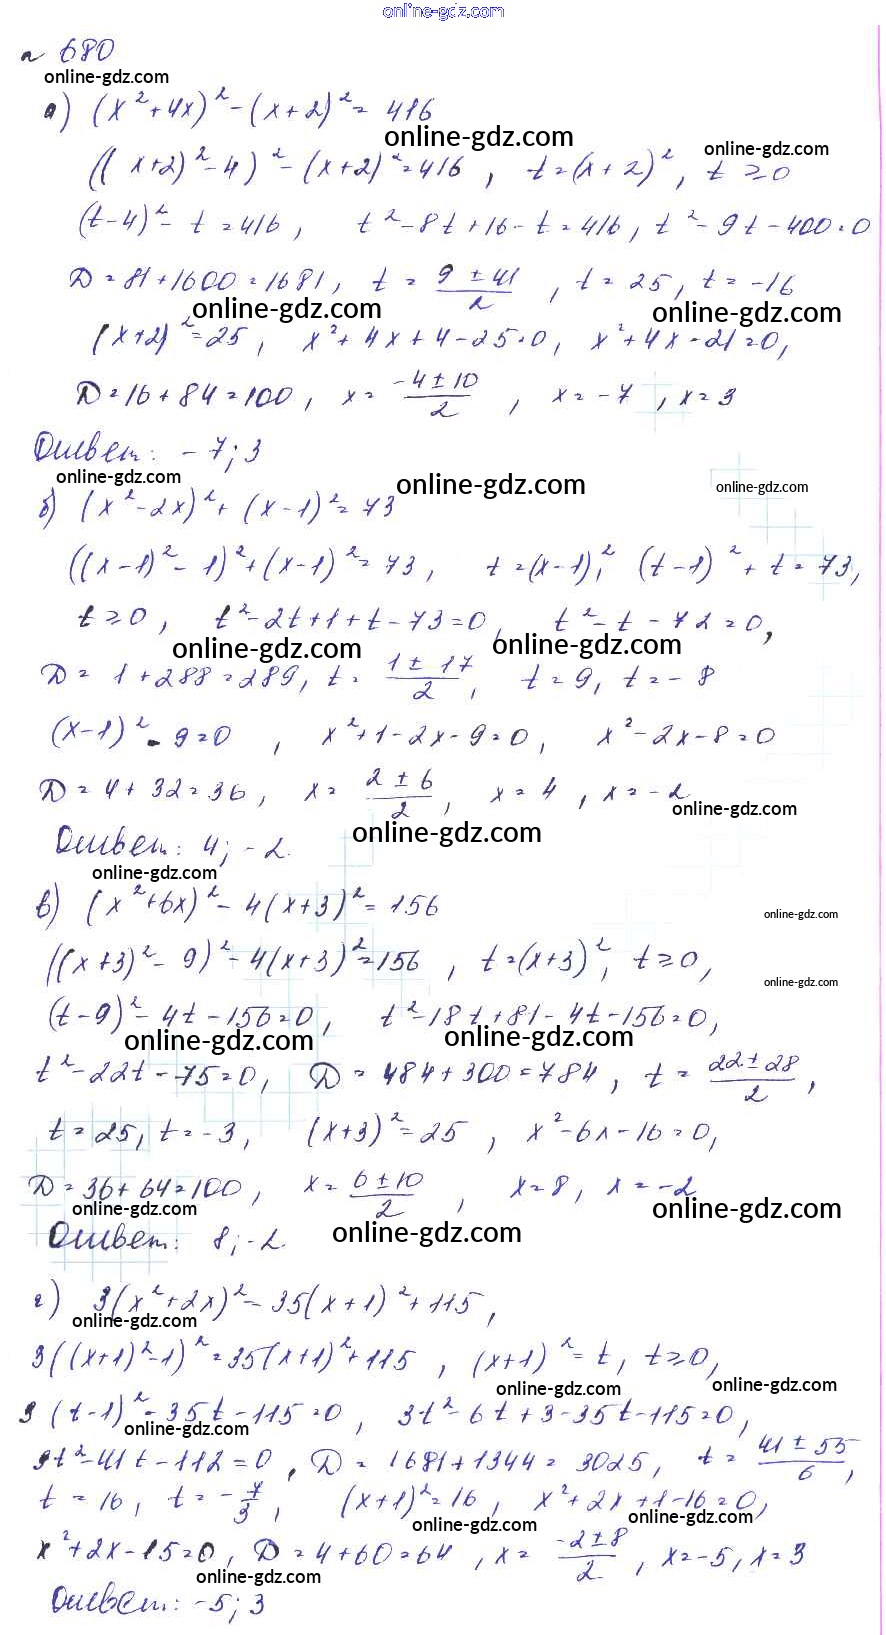 online-gdz.com
n 680
online-gdz.com
а) (x²+4x)²-(x+2)²=416
online-gdz.com online-gdz.com
((x+2)²-4)²-(x+2)²=416, t=(x+2)², t≥0
(t-4)²-t=416, t²-8t+16-t=416, t²-9t-400=0
D=81+1600=1681, t=(9±41)/2, t=25, t=-16
online-gdz.com online-gdz.com
(x+2)²=25, x²+4x+4-25=0, x²+4x-21=0,
D=16+84=100, x=(-4±10)/2, x=-7, x=3
Ответ: -7; 3
online-gdz.com online-gdz.com online-gdz.com
б) (x²-2x)²+(x-1)²=73
((x-1)²-1)²+(x-1)²=73, t=(x-1)², (t-1)²+t=73,
t≥0, t²-2t+1+t-73=0, t²-t-72=0,
online-gdz.com online-gdz.com
D=1+288=289, t=(1±17)/2, t=9, t=-8
(x-1)²-9=0, x²+1-2x-9=0, x²-2x-8=0
D=4+32=36, x=(2±6)/2, x=4, x=-2
online-gdz.com online-gdz.com
Ответ: 4; -2.
online-gdz.com
в) (x²+6x)²-4(x+3)²=156
online-gdz.com
((x+3)²-9)²-4(x+3)²=156, t=(x+3)², t≥0,
online-gdz.com
(t-9)²-4t-156=0, t²-18t+81-4t-156=0,
online-gdz.com online-gdz.com
t²-22t-75=0, D=484+300=784, t=(22±28)/2,
t=25, t=-3, (x+3)²=25, x²-6x-16=0,
D=36+64=100, x=(6±10)/2, x=8, x=-2
online-gdz.com online-gdz.com
Ответ: 8; -2. online-gdz.com
г) 3(x²+2x)²=35(x+1)²+115,
online-gdz.com
3((x+1)²-1)²=35(x+1)²+115, (x+1)²=t, t≥0,
online-gdz.com online-gdz.com
3(t-1)²-35t-115=0, 3t²-6t+3-35t-115=0,
online-gdz.com
3t²-41t-112=0, D=1681+1344=3025, t=(41±55)/6,
t=16, t=-7/3, (x+1)²=16, x²+2x+1-16=0,
online-gdz.com online-gdz.com
x²+2x-15=0, D=4+60=64, x=(-2±8)/2, x=-5, x=3
online-gdz.com
Ответ: -5; 3